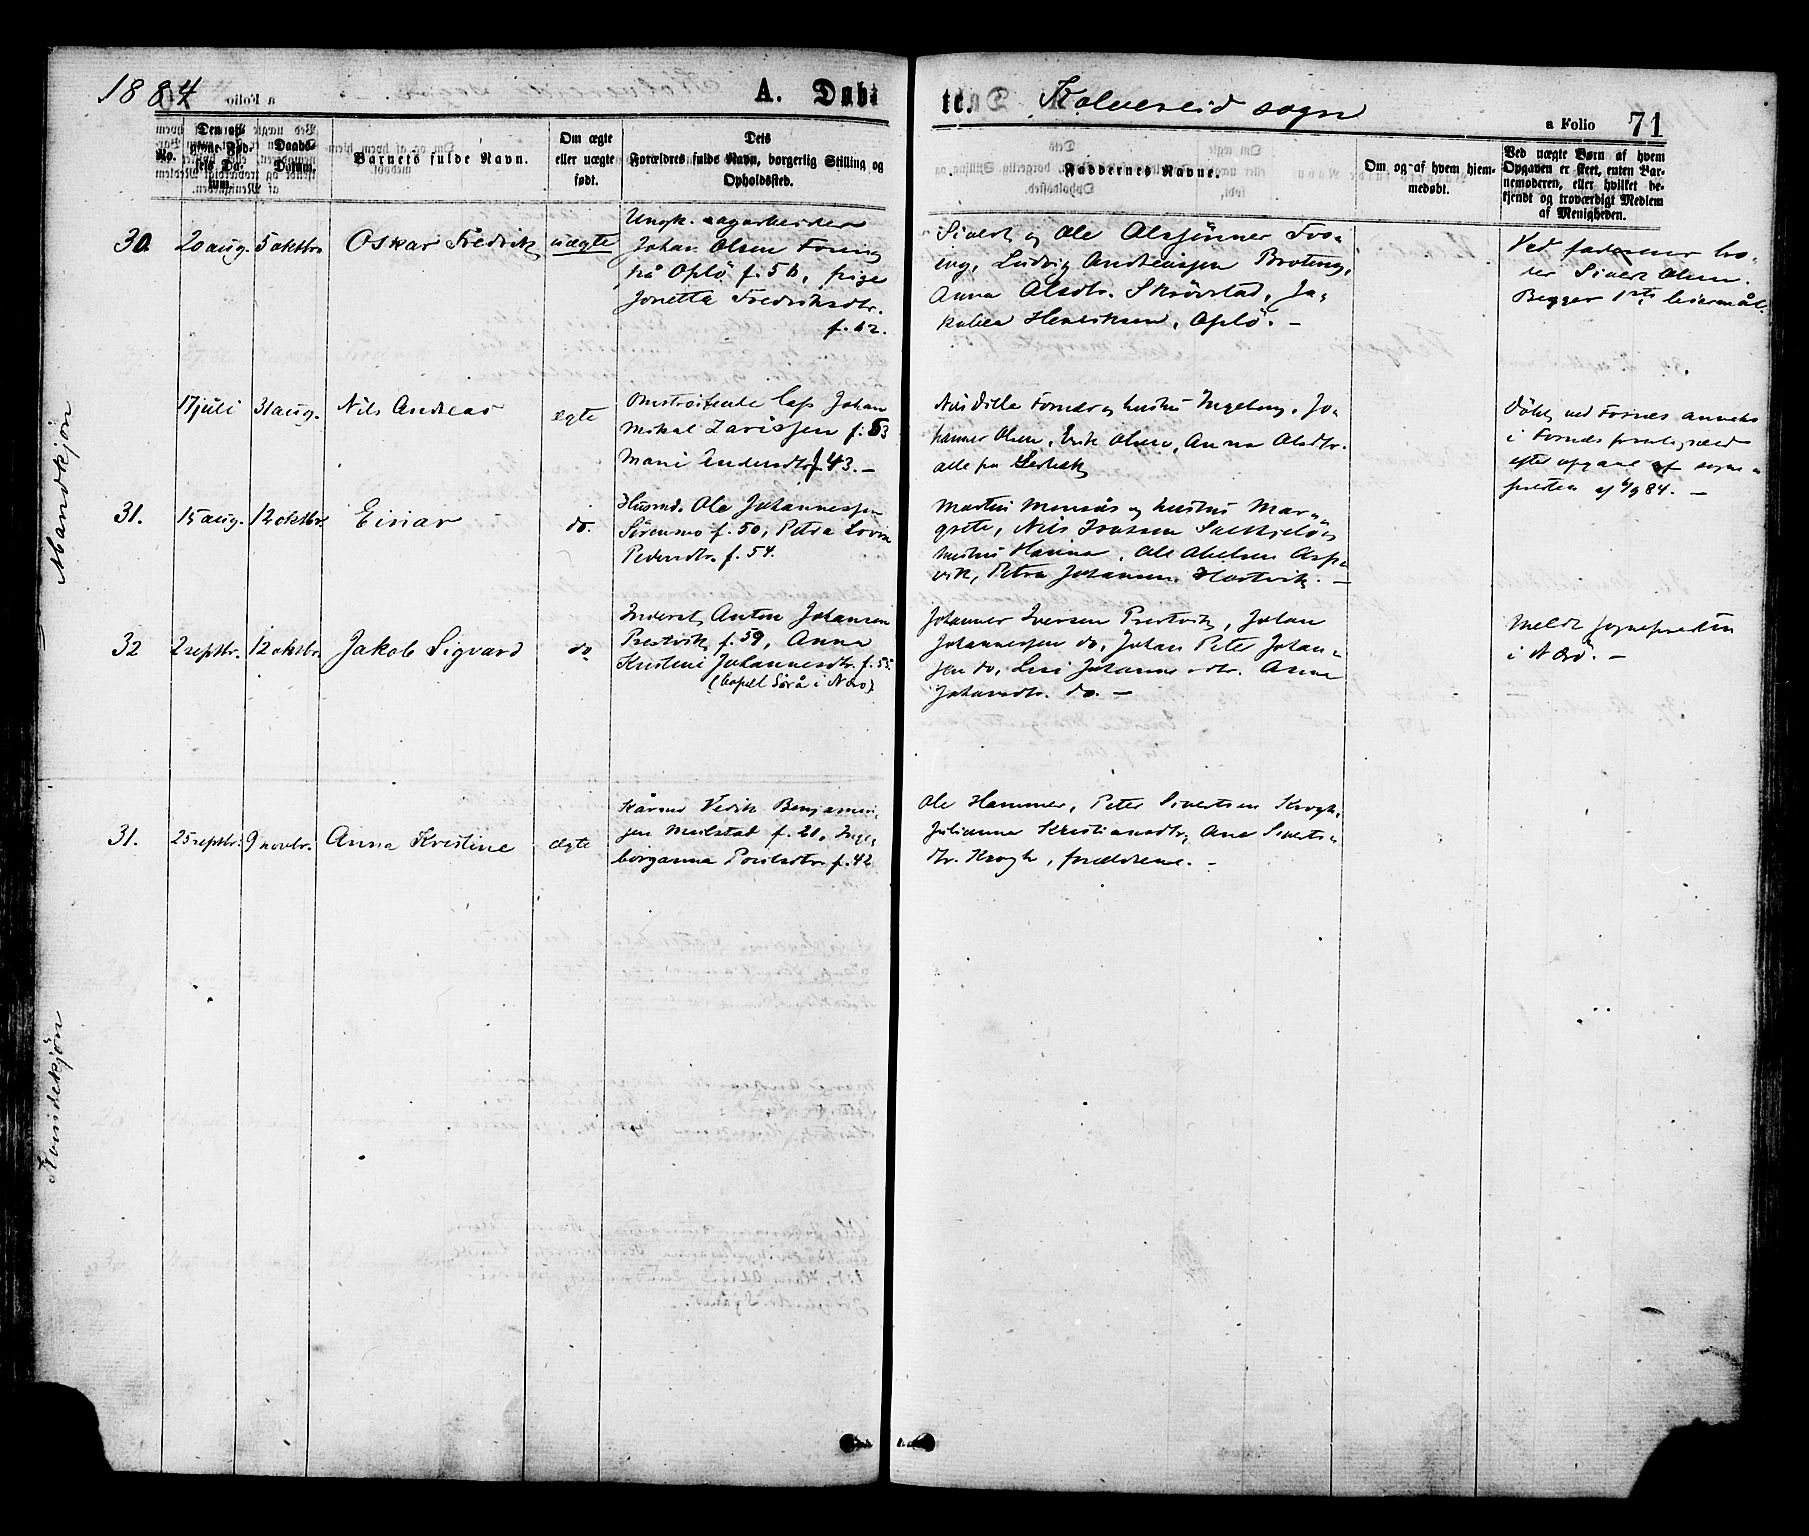 1884
A. Døbte.
Kolvereid sogn
a Folio 71
No.
Den opgivne Fødsels Datum.
Daabs-Datum.
Barnets fulde Navn.
Om ægte
eller uægte
født.
Dets
Forældres fulde Navn, borgerlig Stilling og
Opholdssted.
Faddernes Navne.
Om og af hvem hjem-
medøbt.
Ved uægte Børn af hvem
Opgaven er skeet, enten Bar-
nemoderen, eller hvilket be-
kjendt og troværdigt Medlem
af Menigheden.
Mandkjøn
30. 20 aug. 5 oktbr. Oskar Fredrik uægte
Ungk. sagarbeider
Johan Olsen Foreng
på Oplö f. 56, pige
Jonetta Fredriksdtr.
f. 62.
Sivert og Ole Alssönner Fos-
eng, Ludvig Andreassen Broteng,
Anna Olsdtr. Skrövstad, Ja-
kobea Henriksen, Oplö. –
Ved faderens bro-
der Sivert Olsen.
Begges 1ste leiermål.
17 juli 31 aug. Nils Andreas ægte
Omstreifende lap Johan
Mikal Zarissen f. 53
Marie Andersdtr f. 43. –
Nils Dille Fosnes og hustru Ingeborg, Jo-
hannes Olsen, Erik Olsen, Anna Olsdtr.
alle fra
Döbt ved Fosnes annex
i Fosnes prestegjeld
efter opgave af sogne-
presten af 4/9 84. –
31. 15 aug. 12 oktbr. Einar do.
Husmd. Ole Johannessen
Sörenmo f. 50, Petra Lovise
Pedersdtr. f. 54.
Martin Monsås og hustru Mar-
grete, Nils Ivassen
hustru Hanna, Ole Abelsen Asp-
vik, Petra Johansen Hartvik. –
32 2 septbr. 12 oktbr. Jakob Sigvard do
Inderst Anton Johansen
Prestvik f. 59, Anna
Kristine Johannesdtr. f. 55
(bopæl Sörå i Nærö)
Johannes Iversen Prestvik, Johan
Johannessen do, Johan Peter Johan-
sen do, Lise Johannesdtr. Anne
Johansdtr. do. –
Meldt sognepresten
i Nærö. –
Kvindekjøn
31. 25 septbr. 9 novbr. Anna Kristine ægte
Kårmd Vedik Benjamin-
sen Meilstad f. 21, Inge-
borganna Poulsdtr. f. 42
Ole Hammer, Peter Sivertsen Krogh,
Julianna Kristiansdtr, Ane Siverts-
dtr. Krogh, forældrene. –